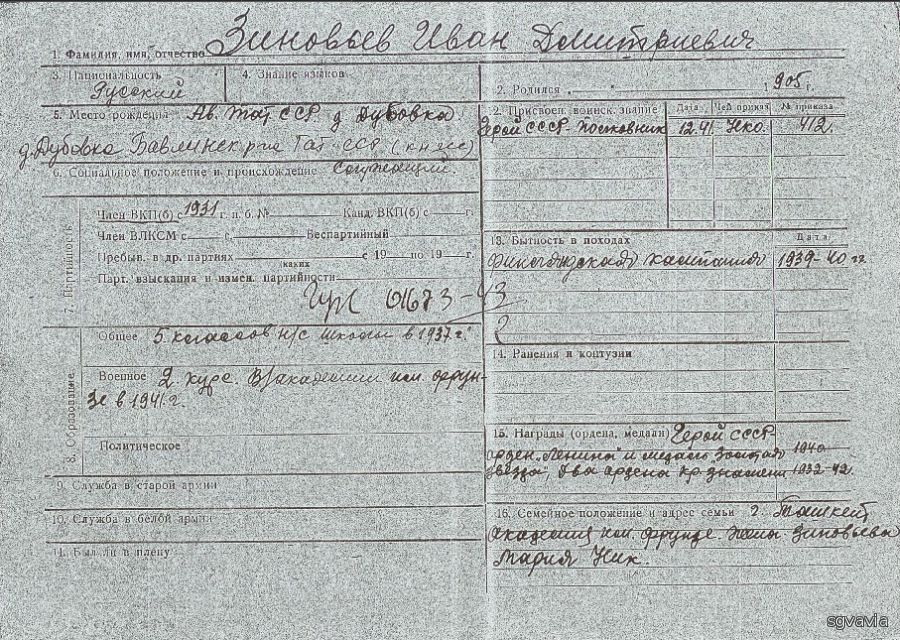 1. Фамилия, имя, отчество Зиновьев Иван Дмитриевич
3. Национальность
Русский
4. Знание языков
5. Место рождения Ав. Тат ССР. д Дубовка
д. Дубовка Бавлинск р-на Тат-ССР
6. Социальное положение и происхождение Служащий.
7. Партийность
Член ВКП(б) с 1931 г. п. б. № Канд. ВКП(б) с — г.
Член ВЛКСМ с — г. Беспартийный
Пребыв. в др. партиях с 19 — по 19 — г.
каких
Парт. взыскания и измен. партийности
01673-43
8. Образование
Общее 5 классов н/с школы в 1937 г.
Военное 2 курс. В/академии им. Фрун-
зе в 1941 г.
Политическое
9. Служба в старой армии
10. Служба в белой армии
11. Был ли в плену
2. Родился 1905 г.
2. Присвоен. воинск. звание Дата Чей приказ № приказа
Герой СССР - полковник 12.41 НКО. 412.
13. Бытность в походах Дата
Финляндская кампания 1939-40 гг
14. Ранения и контузии
15. Награды (ордена, медали) Герой СССР
орден „Ленина" и медаль Золотая 1940
звезда", два ордена кр. знамени 1932-42.
16. Семейное положение и адрес семьи г. Ташкент
Академия им. Фрунзе. Жена. Зиновьева
Мария Ник.
sgvavia